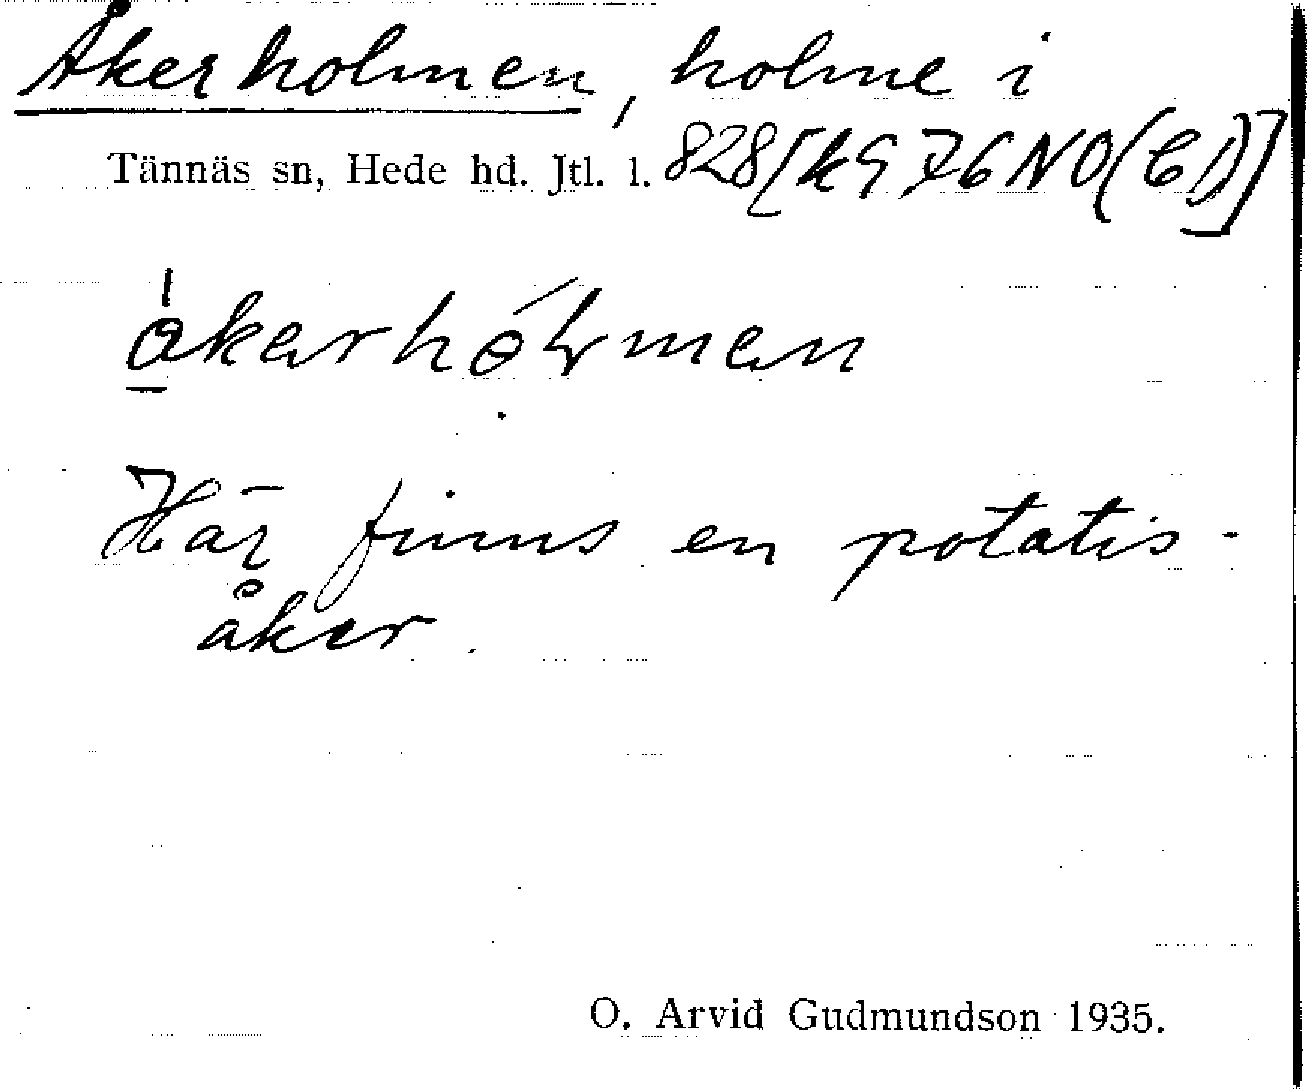 Åkerholmen, holme i
Tännäs sn, Hede hd. Jtl. l. 828
åkerhólmen
Här finns en potatis-
åker.
O. Arvid Gudmundson 1935.